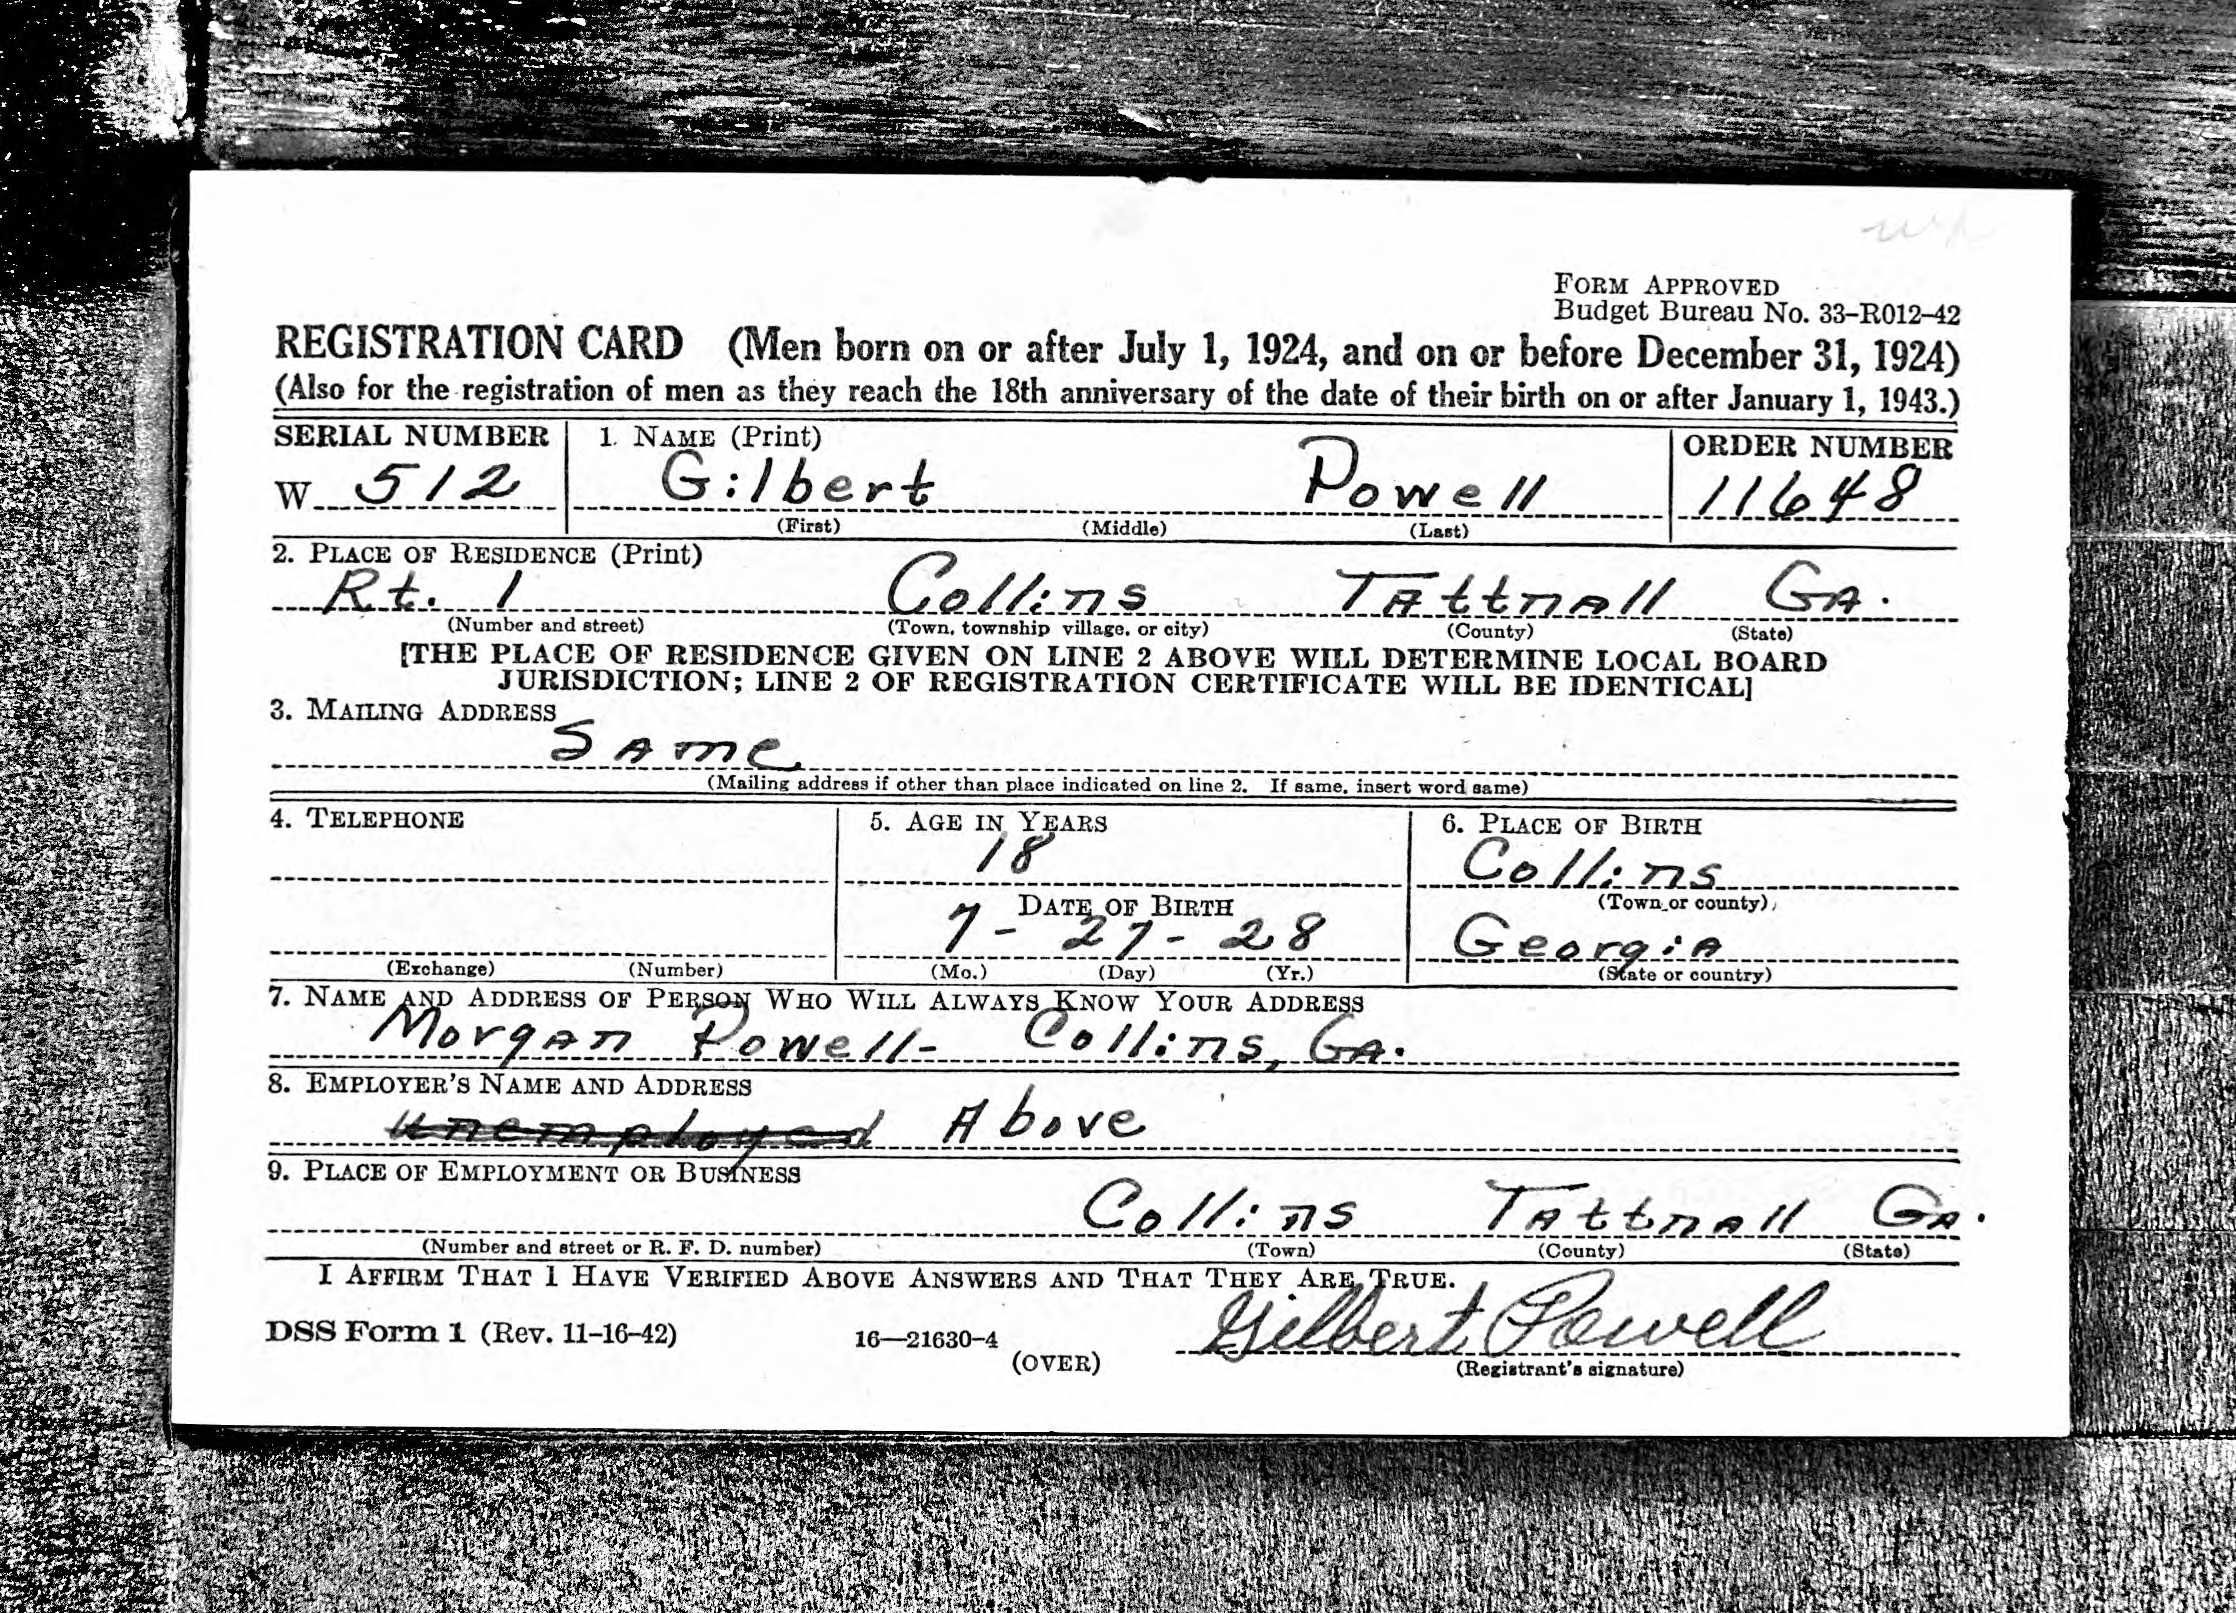 FORM APPROVED
Budget Bureau No. 33-R012-42
REGISTRATION CARD (Men born on or after July 1, 1924, and on or before December 31, 1924)
(Also for the registration of men as they reach the 18th anniversary of the date of their birth on or after January 1, 1943.)
SERIAL NUMBER 1. NAME (Print) ORDER NUMBER
W 512 Gilbert Powell 11648
(First) (Middle) (Last)
2. PLACE OF RESIDENCE (Print)
Rt. 1 Collins Tattnall GA.
(Number and street) (Town, township village, or city) (County) (State)
[THE PLACE OF RESIDENCE GIVEN ON LINE 2 ABOVE WILL DETERMINE LOCAL BOARD
JURISDICTION; LINE 2 OF REGISTRATION CERTIFICATE WILL BE IDENTICAL]
3. MAILING ADDRESS
SAme
(Mailing address if other than place indicated on line 2. If same, insert word same)
4. TELEPHONE 5. AGE IN YEARS 6. PLACE OF BIRTH
18 Collins
(Town or county)
DATE OF BIRTH
7 - 27 - 28 Georgia
(Exchange) (Number) (Mo.) (Day) (Yr.) (State or country)
7. NAME AND ADDRESS OF PERSON WHO WILL ALWAYS KNOW YOUR ADDRESS
Morgan Powell - Collins, GA.
8. EMPLOYER'S NAME AND ADDRESS
unemployed Above
9. PLACE OF EMPLOYMENT OR BUSINESS
Collins Tattnall GA.
(Number and street or R. F. D. number) (Town) (County) (State)
I AFFIRM THAT I HAVE VERIFIED ABOVE ANSWERS AND THAT THEY ARE TRUE.
Gilbert Powell
DSS Form 1 (Rev. 11-16-42) 16—21630-4
(OVER) (Registrant's signature)